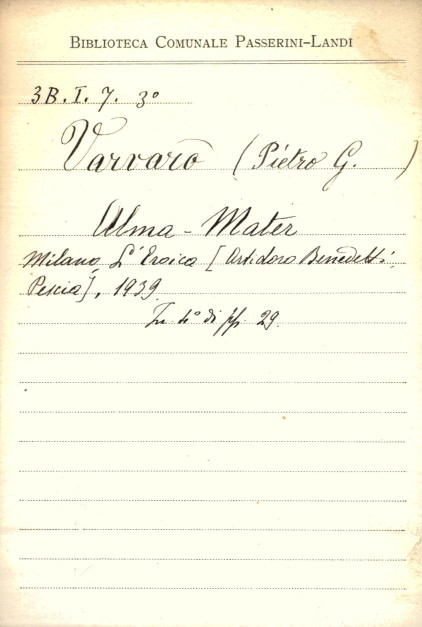 BIBLIOTECA COMUNALE PASSERINI-LANDI
3B. I. 7. 3°
Varvaro (Pietro G. )
Alma-Mater
Milano, L'Eroica [Artidoro Benedetti
Pescia], 1939
In 4° di pp. 29.